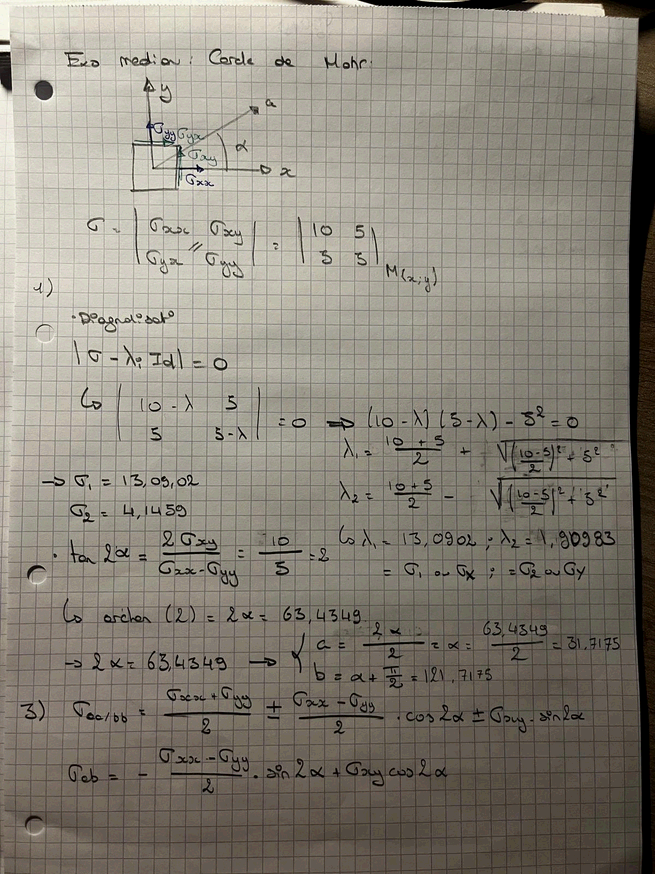 Exo median : Cercle de Mohr.
y
a
σyy σyx
α
σxy
x
σxx
σ = | σxx σxy | = | 10 5 |
| σyx // σyy | | 5 5 | M(x,y)
1)
· Diagnalisat°
|σ - λi Id| = 0
↳ | 10-λ 5 | = 0 ⇒ (10-λ)(5-λ) - 5² = 0
| 5 5-λ |
λ₁ = (10+5)/2 + √((10-5)/2)² + 5²
→ σ₁ = 13,09,02
λ₂ = (10+5)/2 - √((10-5)/2)² + 5²
σ₂ = 4,1459
· tan 2α = 2σxy/(σxx-σyy) = 10/5 = 2
↳ λ₁ = 13,0902 ; λ₂ = 1,90983
= σ₁ ou σx ; = σ₂ ou σy
↳ arctan (2) = 2α = 63,4349
→ 2α = 63,4349 → { a = 2α/2 = α = 63,4349/2 = 31,7175
b = α + π/2 = 121,7175
3) σaa/bb = (σxx + σyy)/2 ± (σxx - σyy)/2 · cos 2α ± σxy · sin 2α
σab = - (σxx - σyy)/2 · sin 2α + σxy cos 2α